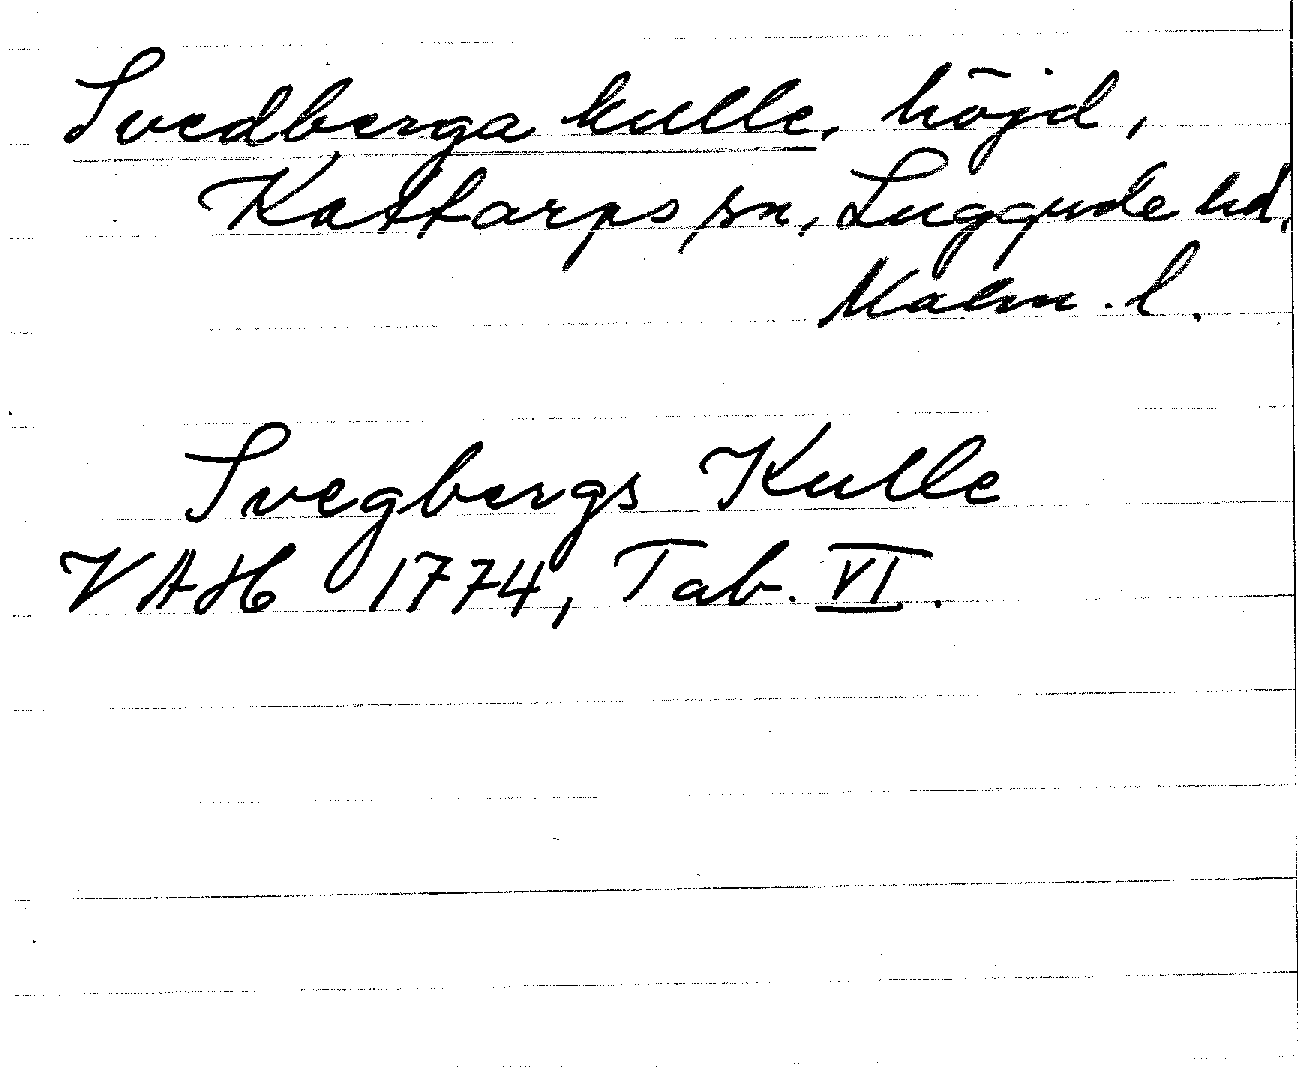 Svedberga kulle, höjd,
Kattarps sn, Luggude hd,
Malm. l.
Svegbergs Kulle
VAH 1774, Tab. VI.